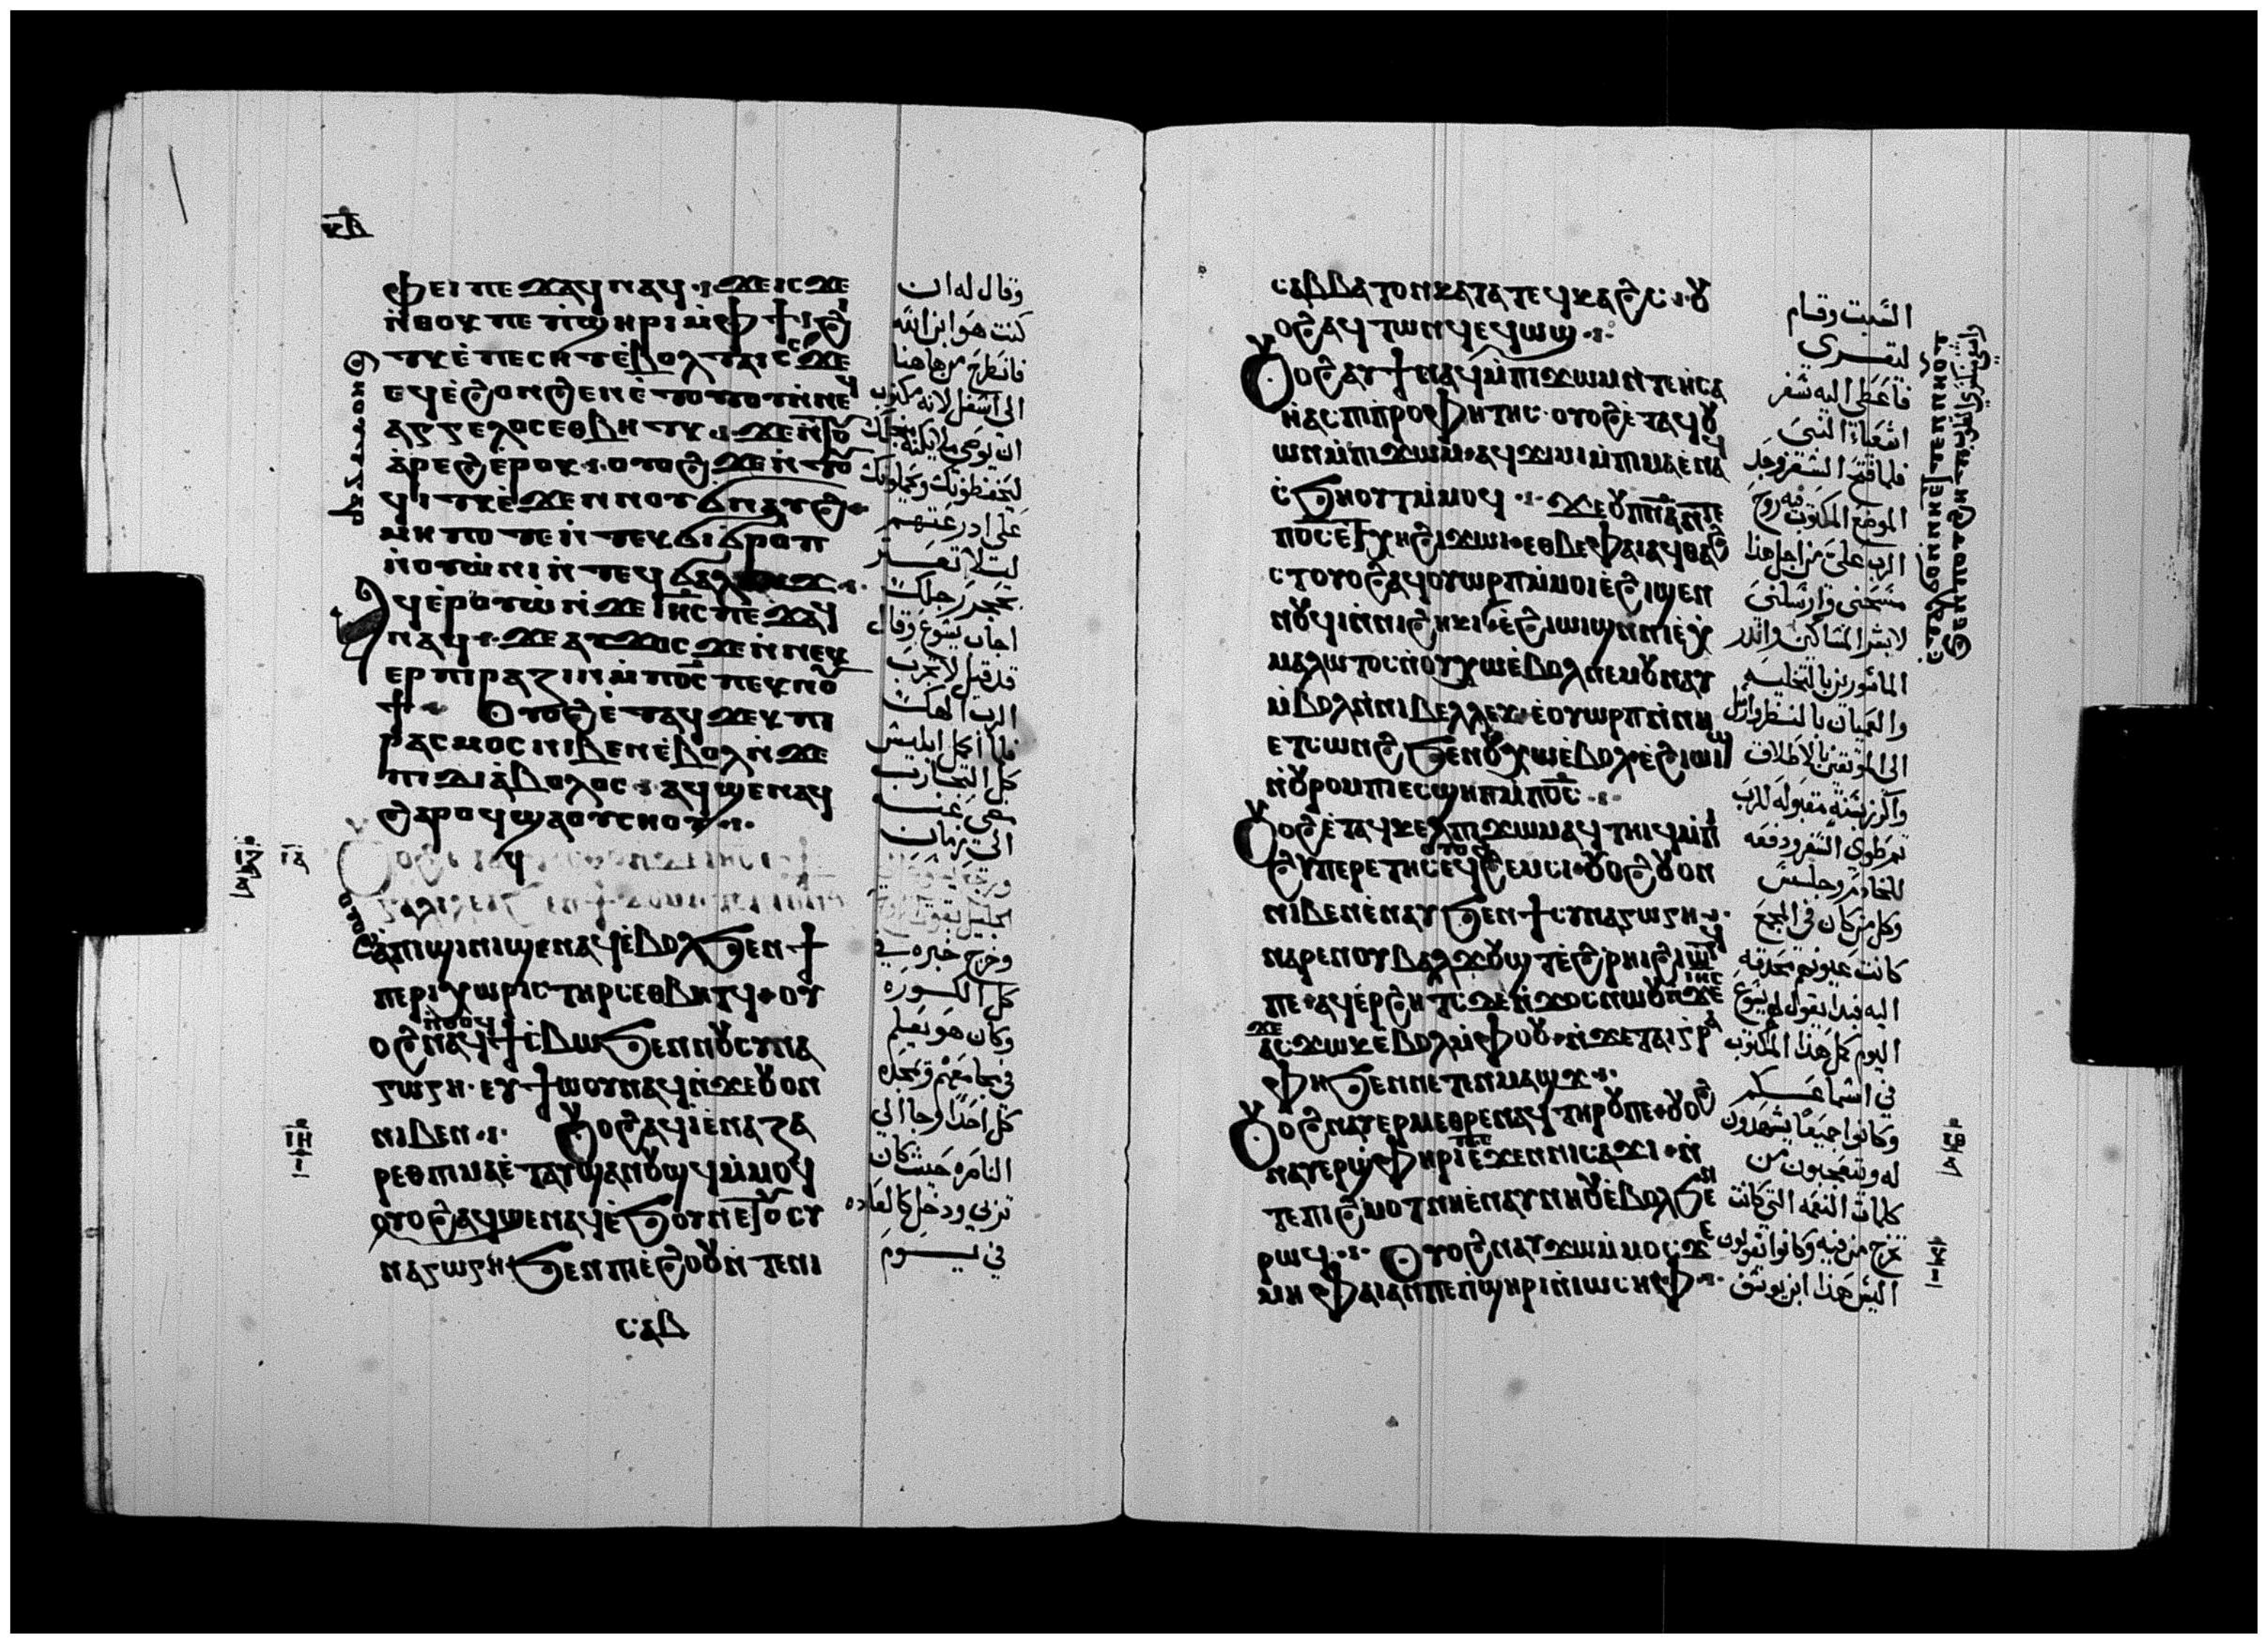 ⲫⲉⲓ ⲡⲉϫⲁϥ ⲛⲁϥ ϫⲉ ⲓⲥϫⲉ
ⲛ̀ⲑⲟⲕ ⲡⲉ ⲡ̀ϣⲏⲣⲓ ⲙ̀ⲫϯ ϩⲓ
ⲧⲕ ⲉ̀ⲡⲉⲥⲏⲧ ⲉ̀ⲃⲟⲗ ⲧⲁⲓ ϫⲉ
ⲁⲅⲅⲉⲗⲟⲥ ⲉⲑⲃⲏⲧⲕ ϫⲉ ⲛ̀ⲧⲟⲩ
ⲁ̀ⲣⲉϩ ⲉ̀ⲣⲟⲕ ⲟⲩⲟϩ ϫⲉ ⲛ̀ⲧⲟⲩ
ϥⲓⲧⲕ ⲉ̀ϫⲉⲛ ⲛⲟⲩⲛⲁϩ
ⲙⲏⲡⲟⲧⲉ ⲛ̀ⲧⲉⲕϭⲓϭⲣⲟⲡ
ⲛ̀ⲟⲩⲱ̀ⲛⲓ ⲛ̀ⲧⲉⲕϭⲁⲗⲟϫ
ⲁϥⲉ̀ⲣⲟⲩⲱ̀ ⲛ̀ϫⲉ ⲓⲏⲥ ⲡⲉϫⲁϥ
ⲛⲁϥ ϫⲉ ⲁⲩϫⲟⲥ ϫⲉ ⲛ̀ⲛⲉⲕ
ⲉⲣⲡⲓⲣⲁⲍⲓⲛ ⲙ̀ⲡⲟ̅ⲥ̅ ⲡⲉⲕⲛⲟⲩ
ϯ ⲟⲩⲟϩ ⲉ̀ⲧⲁϥϫⲉⲕ ⲡⲓ
ⲣⲁⲥⲙⲟⲥ ⲛⲓⲃⲉⲛ ⲉ̀ⲃⲟⲗ ⲛ̀ϫⲉ
ⲡⲓⲇⲓⲁ̀ⲃⲟⲗⲟⲥ ⲁϥϣⲉⲛⲁϥ
ϩⲁⲣⲟϥ ϣⲁ ⲟⲩⲥⲏⲟⲩ
ⲁ̀ⲡϣⲓⲛⲓ ϣⲉⲛⲁϥ ⲉ̀ⲃⲟⲗ ϧⲉⲛ ϯ
ⲡⲉⲣⲓⲭⲱⲣⲓⲥ ⲧⲏⲣⲥ ⲉⲑⲃⲏⲧϥ ⲟⲩ
ⲟϩ ⲛ̀ⲑⲟϥ ⲛⲁϥϯⲥⲃⲱ ϧⲉⲛ ⲛⲟⲩⲥⲩⲛⲁ
ⲅⲱⲅⲏ ⲉⲩϯⲱⲟⲩ ⲛⲁϥ ⲛ̀ϫⲉ ⲟⲩⲟⲛ
ⲛⲓⲃⲉⲛ ⲟⲩⲟϩ ⲁϥⲓ̀ ⲉ̀ⲛⲁⲍⲁ
ⲣⲉⲑ ⲡⲓⲙⲁ ⲉ̀ⲧⲁⲩϣⲁⲛⲟⲩϣϥ ⲙ̀ⲙⲟϥ
ⲟⲩⲟϩ ⲁϥϣⲉⲛⲁϥ ⲉ̀ϧⲟⲩⲛ ⲉ̀ϯⲥⲩ
ⲛⲁⲅⲱⲅⲏ ϧⲉⲛ ⲡⲓⲉ̀ϩⲟⲟⲩ ⲛ̀ⲧⲉ ⲛⲓ
ⲥⲁⲃ
وقال له ان
كنت هو ابن الله
فانطرح من هاهنا
الى اسفل لانه مكتوب
ليحفظونك ويحملونك
على اذرعتهم
ليلا تعثر
بحجر رجلك
اجاب يسوع وقال
قد قيل لا تجرب
الرب الهك
فلما اكمل ابليس
كل التجارب
مضى عنه
الى زمان
وخرج خبره في
كل الكوره
وكان هو يعلم
في مجامعهم ويمجده
كل احد وجا الى
الناصره حيث كان
تربى ودخل كالعاده
في يوم
ⲥⲁⲃⲃⲁⲧⲟⲛ ⲕⲁⲧⲁ ⲧⲉϥⲕⲁϩⲥ ⲟⲩ
ⲟϩ ⲁϥⲧⲱⲛϥ ⲉϥⲱϣ
ⲟⲩⲟϩ ⲁⲩϯ ⲛⲁϥ ⲙ̀ⲡⲓϫⲱⲙ ⲛ̀ⲧⲉ ⲏ̀ⲥⲁ
ⲏ̀ⲁⲥ ⲡⲓⲡⲣⲟⲫⲏⲧⲏⲥ ⲟⲩⲟϩ ⲉ̀ⲧⲁϥⲟⲩ
ⲱⲛ ⲙ̀ⲡⲓϫⲱⲙ ⲁϥϫⲓⲙⲓ ⲙ̀ⲡⲓⲙⲁ ⲉ̀ⲛⲁϥ
ⲥ̀ϧⲏⲟⲩⲧ ⲙ̀ⲙⲟϥ ϫⲉ ⲟⲩⲡ̅ⲛ̅ⲁ̅ ⲛ̀ⲧⲉ
ⲡⲟ̅ⲥ̅ ⲉⲧⲭⲏ ϩⲓϫⲱⲓ ⲉⲑⲃⲉ ⲫⲁⲓ ⲁϥⲑⲁϩ
ⲥⲧ ⲟⲩⲟϩ ⲁϥⲟⲩⲱⲣⲡ ⲙ̀ⲙⲟⲓ ⲉ̀ϩⲓϣⲉⲛ
ⲛⲟⲩϥⲓ ⲛ̀ⲛⲓϩⲏⲕⲓ ⲉ̀ϩⲓⲱⲓϣ ⲛ̀ⲛⲓⲉⲭ
ⲙⲁⲗⲱⲧⲟⲥ ⲛ̀ⲟⲩⲭⲱ ⲉ̀ⲃⲟⲗ ⲛⲉⲙ ⲟⲩⲛⲁⲩ
ⲙ̀ⲃⲟⲗ ⲛ̀ⲛⲓⲃⲉⲗⲗⲉⲩ ⲉ̀ⲟⲩⲱⲣⲡ ⲛ̀ⲛⲏ
ⲉⲧⲥⲱⲛϩ ϧⲉⲛ ⲟⲩⲭⲱ ⲉ̀ⲃⲟⲗ ⲉ̀ϩⲓⲱⲓϣ
ⲛ̀ⲟⲩⲣⲟⲙⲡⲓ ⲉⲥϣⲏⲡ ⲙ̀ⲡⲟ̅ⲥ̅
ⲟⲩⲟϩ ⲉ̀ⲧⲁϥⲕⲉⲗ ⲡⲓϫⲱⲙ ⲁϥⲧⲏⲓϥ ⲙ̀ⲡⲓ
ϩⲩⲡⲉⲣⲉⲧⲏⲥ ⲟⲩⲟϩ ⲁϥϩⲉⲙⲥⲓ ⲟⲩⲟϩ ⲟⲩⲟⲛ
ⲛⲓⲃⲉⲛ ⲉ̀ⲛⲁⲩ ϧⲉⲛ ϯⲥⲩⲛⲁⲅⲱⲅⲏ
ⲛⲁⲣⲉ ⲛⲟⲩⲃⲁⲗ ϫⲟⲩϣⲧ ⲉ̀ϩ̀ⲣⲏⲓ ϩⲓⲱⲧϥ
ⲡⲉ ⲁϥⲉⲣϩⲏⲧⲥ ⲇⲉ ⲛ̀ϫⲟⲥ ⲛⲱⲟⲩ ⲛ̀ϫⲉ ⲓⲏⲥ
ϫⲉ ⲁⲥϫⲱⲕ ⲉ̀ⲃⲟⲗ ⲙ̀ⲫⲟⲟⲩ ⲛ̀ϫⲉ ⲧⲁⲓⲅⲣⲁ
ⲫⲏ ϧⲉⲛ ⲛⲉⲧⲉⲛⲙⲁϣϫ
ⲟⲩⲟϩ ⲛⲁⲩⲉⲣⲙⲉⲑⲣⲉ ⲛⲁϥ ⲧⲏⲣⲟⲩ ⲡⲉ ⲟⲩⲟϩ
ⲛⲁⲩⲉⲣϣ̀ⲫⲏⲣⲓ ⲡⲉ ⲉ̀ϫⲉⲛ ⲛⲓⲥⲁϫⲓ ⲛ̀
ⲧⲉ ⲡⲓϩ̀ⲙⲟⲧ ⲛⲏ ⲉ̀ⲛⲁⲩⲛⲏⲟⲩ ⲉ̀ⲃⲟⲗ ϧⲉⲛ
ⲣⲱϥ ⲟⲩⲟϩ ⲛⲁⲩϫⲱ ⲙ̀ⲙⲟⲥ ϫⲉ
ⲙⲏ ⲫⲁⲓ ⲁⲛ ⲡⲉ ⲡ̀ϣⲏⲣⲓ ⲛ̀ⲓⲱⲥⲏⲫ
السبت وقام
ليقرى
فاعطى اليه سفر
اشعياء النبي
فلما فتح السفر وجد
الموضع المكتوب فيه روح
الرب علي من اجل هذا
مسحني وارسلني
لابشر المساكين وانذر
الماسورين بالتخليه
والعميان بالنظر وارسل
الى الموثقين بالاطلاق
واكرز بسنة مقبوله للرب
ثم طوى السفر ودفعه
للخادم وجلس
وكل من كان في المجمع
كانت عيونهم محدقه
اليه فبدا يقول لهم يسوع
اليوم كمل هذا المكتوب
في اسماعكم
وكانوا جميعا يشهدون
له ويتعجبون من
كلمات النعمه التي كانت
تخرج من فيه وكانوا يقولون
اليس هذا ابن يوسف